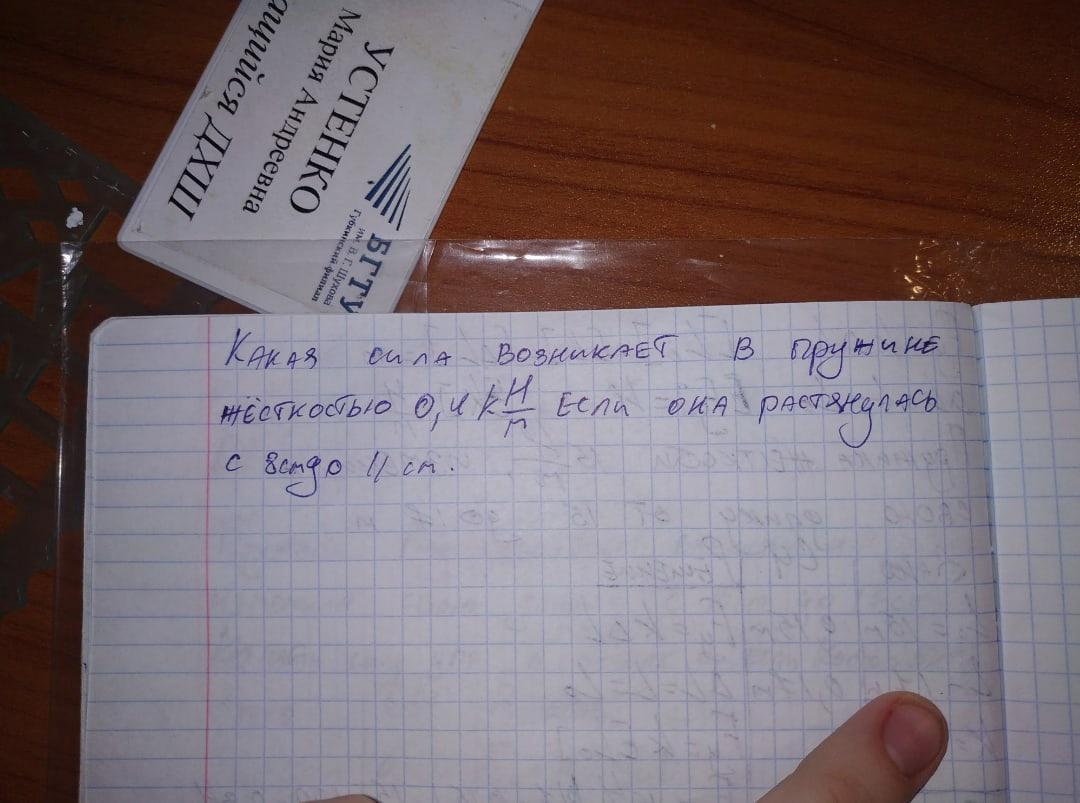 ащийся ДХШ
УСТЕНКО
Мария Андреевна
БГТУ
им. В. Г. Шухова
Губкинский филиал
Какая сила возникает в пружине
жёсткостью 0,4 kН/м если она растянулась
с 8смдо 11 см.